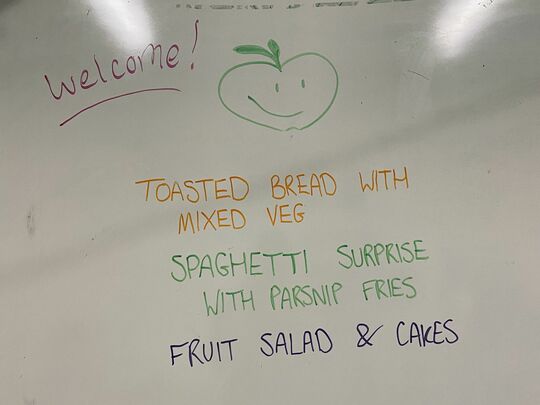 Welcome!
TOASTED BREAD WITH
MIXED VEG
SPAGHETTI SURPRISE
WITH PARSNIP FRIES
FRUIT SALAD & CAKES